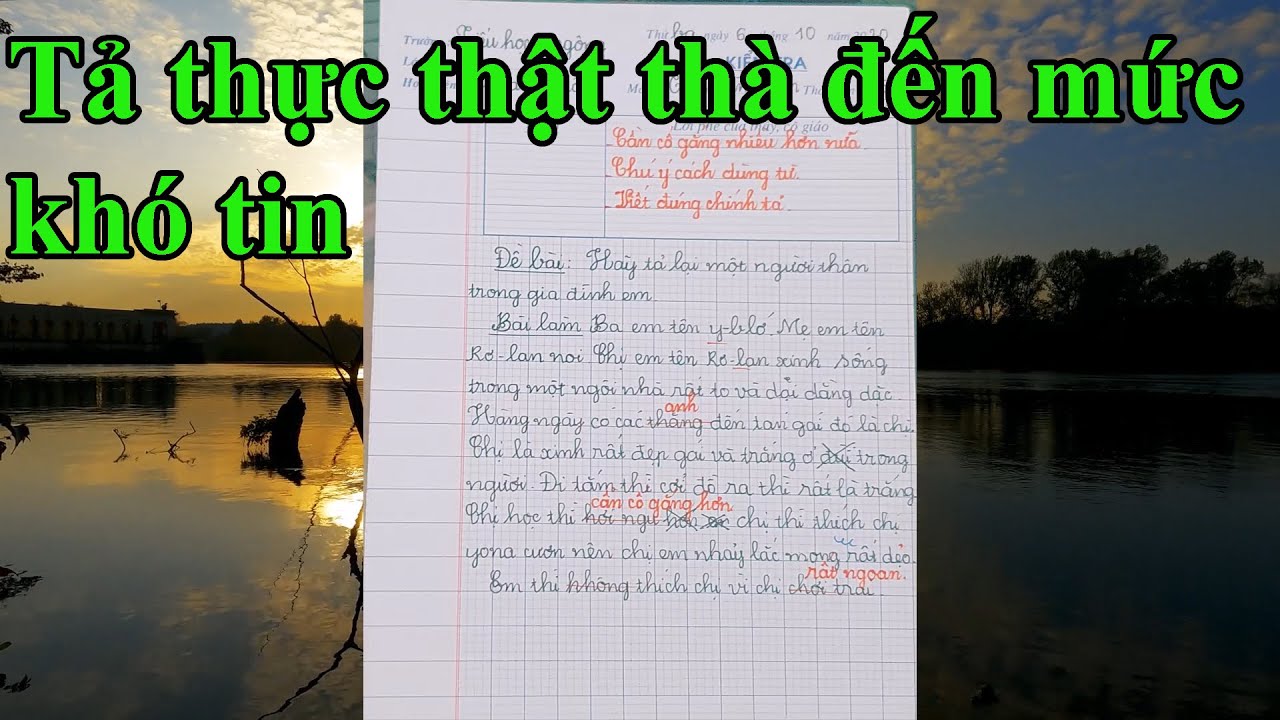 Tả thực thật thà đến mức
khó tin
Thứ ba ngày 6 10 năm
Lời phê của thầy, cô giáo
- Cần cố gắng nhiều hơn nữa.
- Chú ý cách dùng từ.
- Viết đúng chính tả.
Đề bài: Hãy tả lại một người thân
trong gia đình em.
Bài làm Ba em tên y-blố Mẹ em tên
Rơ-lan noi Chị em tên Rơ-lan xinh sống
trong một ngôi nhà rất to và dài dằng dặc.
anh
Hàng ngày có các thằng đến tán gái đó là chị.
Chị là xinh rất đẹp gái và trắng ở trong
người. Đi tắm thì cởi đồ ra thì rất là trắng
cần cố gắng hơn
Chị học thì hơi ngu chị thì thích chị
yona cươn nên chị em nhảy lắc mong rất dẻo.
rất ngoan.
Em thì không thích chị vì chị chơi trai.